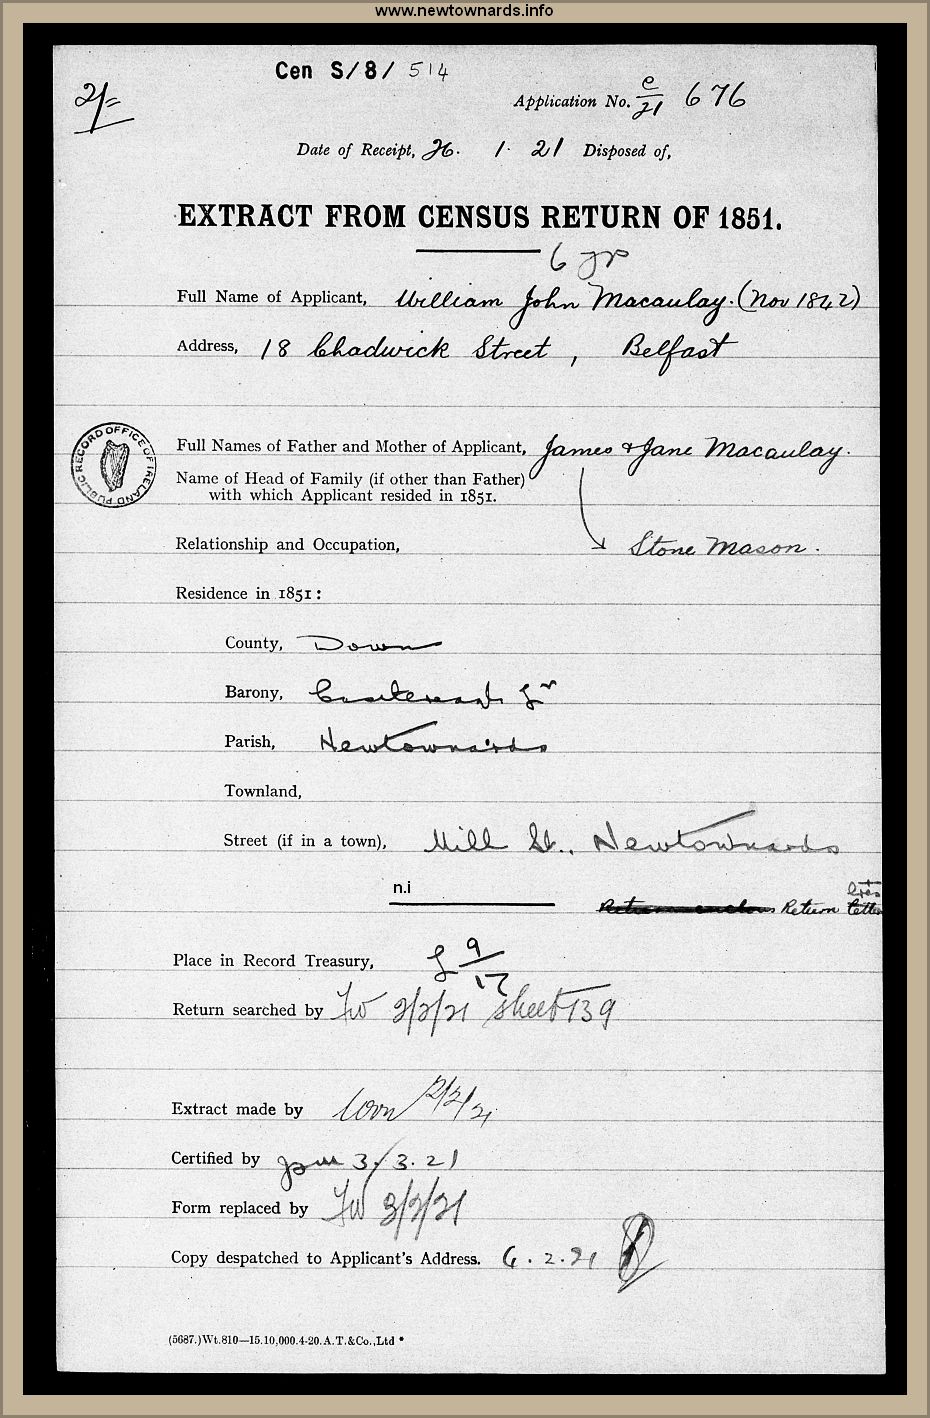 www.newtownards.info
Cen S/8/ 514
2/=
Application No. C/21 676
Date of Receipt, 26. 1. 21 Disposed of,
EXTRACT FROM CENSUS RETURN OF 1851.
6
Full Name of Applicant, William John Macaulay. (Nov 1842)
Address, 18 Chadwick Street, Belfast
PUBLIC RECORD OFFICE OF IRELAND
Full Names of Father and Mother of Applicant, James & Jane Macaulay.
Name of Head of Family (if other than Father)
with which Applicant resided in 1851.
Relationship and Occupation, Stone Mason.
Residence in 1851:
County, Down
Barony, Castlereagh Lr
Parish, Newtownards
Townland,
Street (if in a town), Mill St., Newtownards
n.i
Return Letter
Place in Record Treasury, 9/17
Return searched by 2/2/21 sheet 139
Extract made by 2/2/21
Certified by 3/3.21
Form replaced by 3/2/21
Copy despatched to Applicant's Address. 4.2.21
(5687.)Wt.810—15.10,000.4-20.A.T.&Co.,Ltd